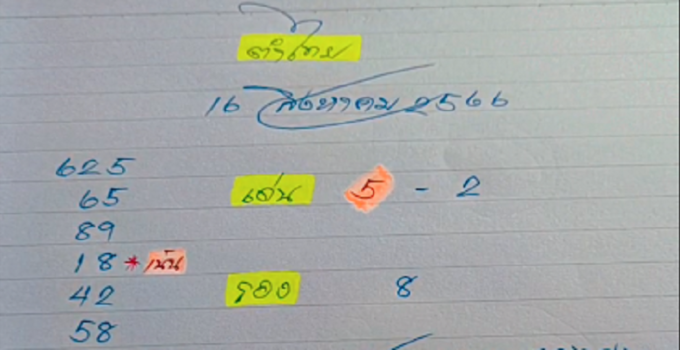 16 สิงหาคม 2566
625
65 เด่น 5 - 2
89
18 * เน้น
42 รอง 8
58